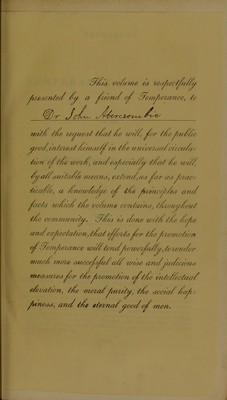 This volume is respectfully
presented by a friend of Temperance, to
Dr John Abercrombie
with the request that he will, for the public
good, interest himself in the universal circula-
tion of the work, and especially that he will,
by all suitable means, extend, as far as prac-
ticable, a knowledge of the principles and
facts which the volume contains, throughout
the community. This is done with the hope
and expectation, that efforts for the promotion
of Temperance will tend powerfully, to render
much more successful all wise and judicious
measures for the promotion of the intellectual
elevation, the moral purity, the social hap-
piness, and the eternal good of men.